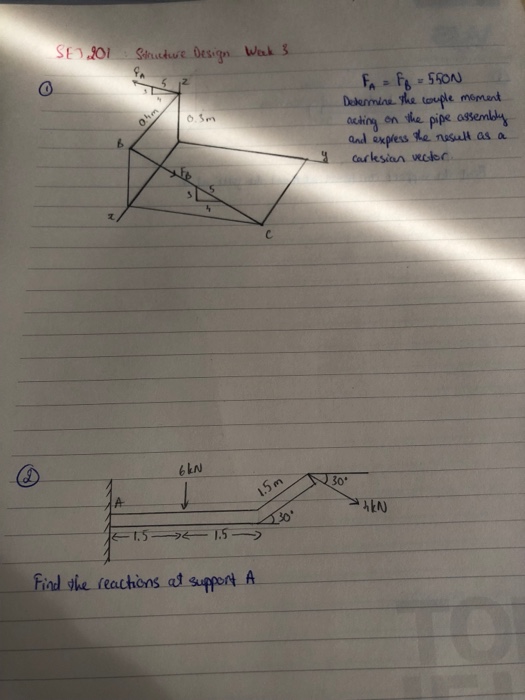 SET 201 : Structure Design Week 3
① FA = FB = 550N
Determine the couple moment
acting on the pipe assembly
and express the result as a
cartesian vector.
FA
5
3
4
z
0.4m
0.3m
B
y
FB
5
3
4
x
C
② 6kN
A
1.5m
30°
4kN
30°
1.5
1.5
Find the reactions at support A